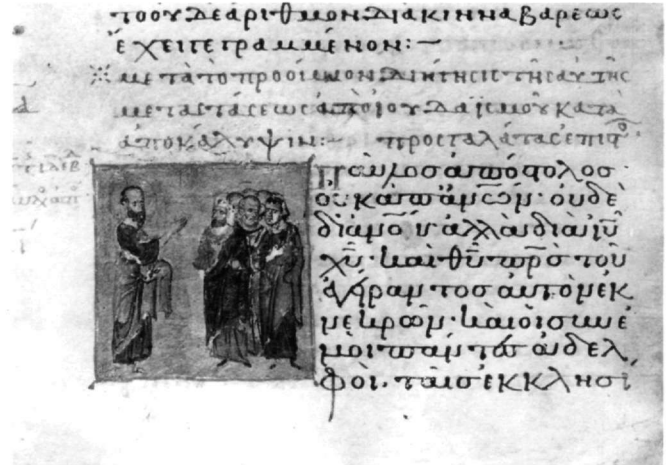 τοου δε αριθμον δια κινναβαρεως
ἔχει γεγραμμένον:—
※ μετὰ τὸ προοίμιον. διήγησις τῆς αὐτῆς
μεταστάσεως ἀπὸ ἰουδαϊσμοῦ κατὰ
ἀποκάλυψιν:— προς γαλάτας ἐπιστο
Παῦλος ἀπόστολος
οὐκ ἀπ ἀν̅ω̅ν· οὐδὲ
δι αν̅ο̅υ ἀλλὰ διὰ ιυ̅
χυ̅· καὶ θυ̅ πρ̅ς τοῦ
ἐγείραντος αὐτὸν ἐκ
νεκρῶν· καὶ οἱ σὺν ἐ
μοὶ πάντες ἀδελ
φοὶ· ταῖς ἐκκλησί